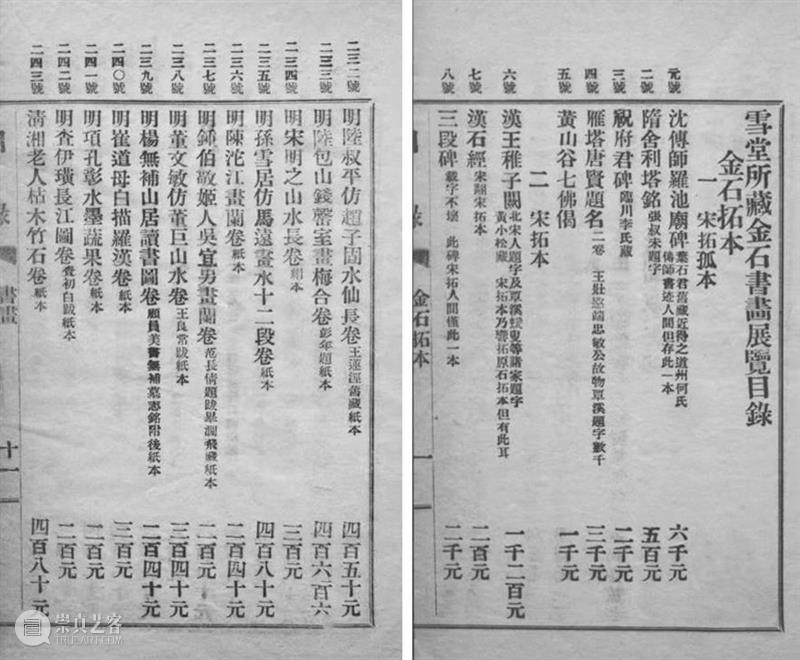 雪堂所藏金石書畫展覽目錄
金石拓本
一 宋拓孤本
元號 沈傳師羅池廟碑 葉石君舊藏近得之道州何氏 傳師書迹人間但存此一本 六千元
二號 隋舍利塔銘 張叔未題字 五百元
三號 祝府君碑 臨川李氏藏 二千元
四號 雁塔唐賢題名 二卷 王壯愍端忠敏公故物覃溪題字數千 三千元
五號 黃山谷七佛偈 一千元
二 宋拓本
六號 漢王稚子闕 北宋人題字及覃溪嫒叟等諸家題字 黃小松藏 宋拓本乃響拓原石拓本但有此耳 一千二百元
七號 漢石經 宋翻宋拓本 二百元
八號 三段碑 載字不壞 此碑宋拓人間僅此一本 二千元
金石拓本
一
二三二號 明陸叔平仿趙子固水仙長卷 王蓮涇舊藏紙本 四百五十元
二三三號 明陸包山錢罄室畫梅合卷 彭年題紙本 四百六百六
二三四號 明宋明之山水長卷 絹本 三百元
二三五號 明孫雪居仿馬遠畫水十二段卷 紙本 四百八十元
二三六號 明陳沱江畫蘭卷 紙本 二百四十元
二三七號 明鍾伯敬姬人吳宜男畫蘭卷 范長倩題跋畢澗飛藏紙本 二百元
二三八號 明董文敏仿董巨山水卷 王良常跋紙本 三百四十元
二三九號 明楊無補山居讀書圖卷 顧員美書無補墓志銘附後紙本 二百四十元
二四〇號 明崔道母白描羅漢卷 紙本 三百元
二四一號 明項孔彰水墨蔬果卷 紙本 二百元
二四二號 明查伊璜長江圖卷 查初白跋紙本 二百元
二四三號 清湘老人枯木竹石卷 紙本 四百八十元
目錄
書畫
十一
崇真艺客
TRUEART.COM